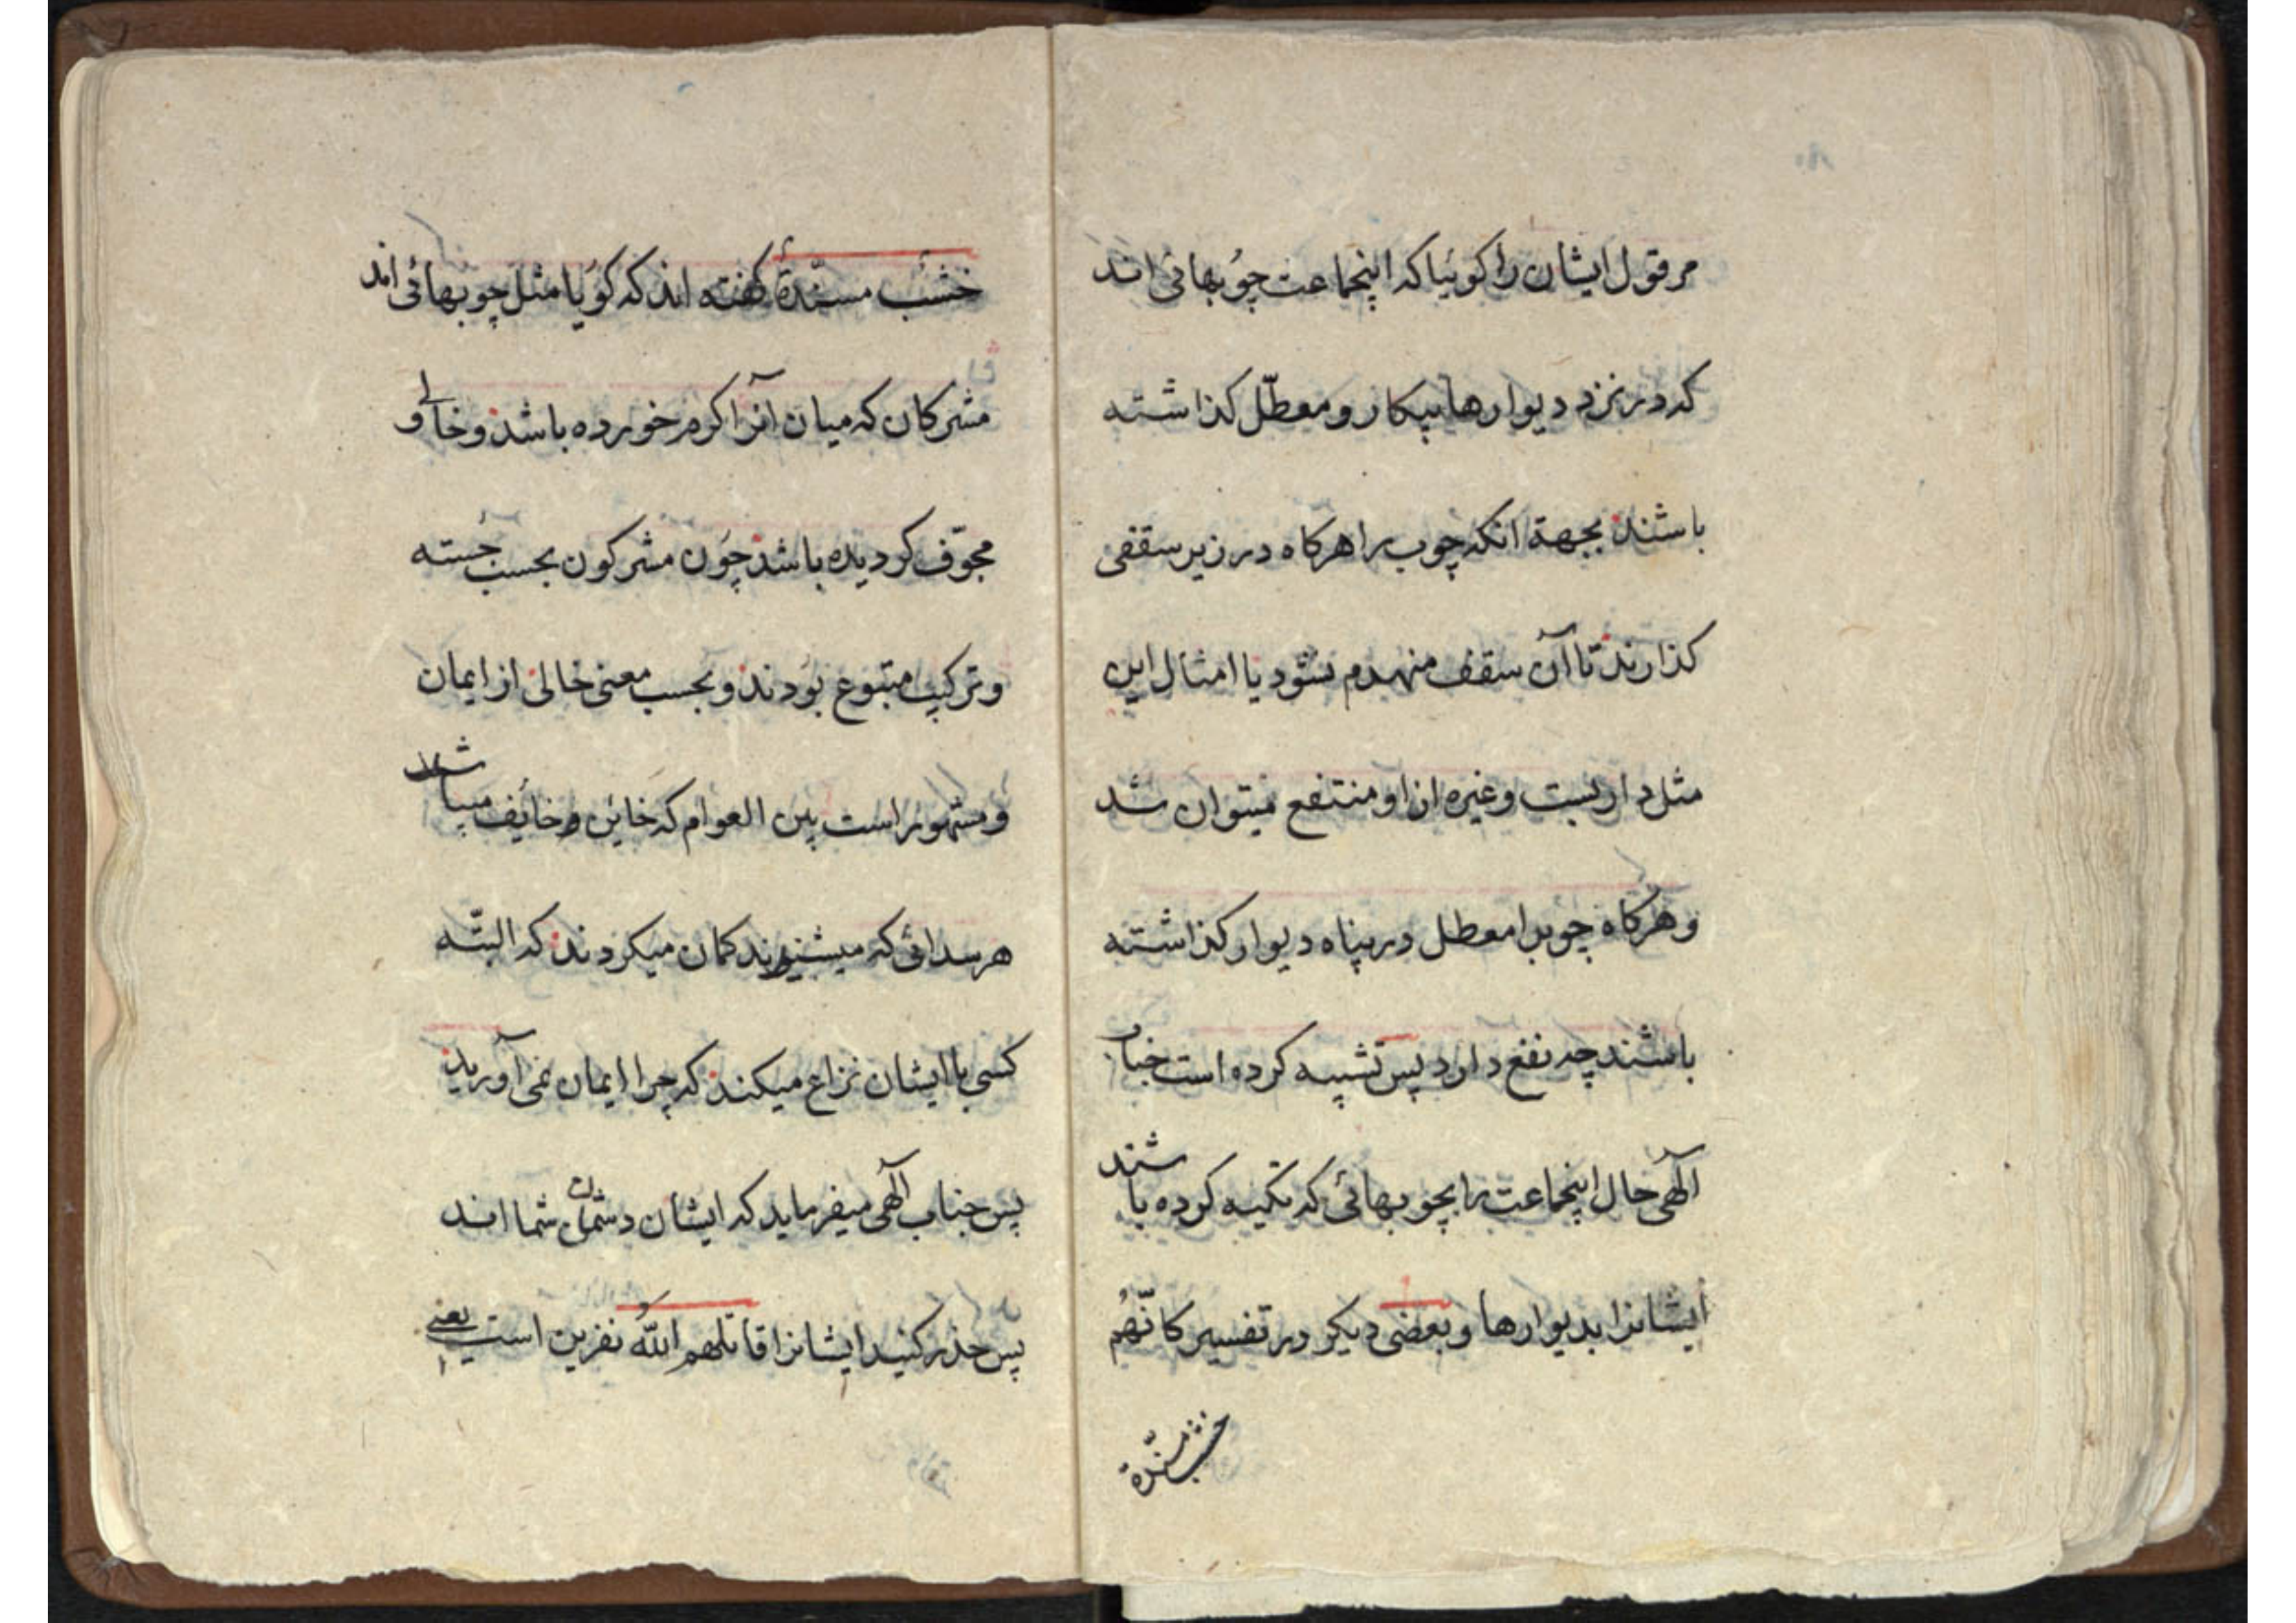 مر قول ایشان را کوئیا که اینجماعت چوُبهائی اند
که در نزد دیوارها بیکار و معطّل کذاشته
باشند بجهة انکه چوب را هرکاه در زیر سقفی
کذارند تا آن سقف منهدم نشود یا امثال این
مثل داربست و غیره از او منتفع میتوان شد
و هرکاه چوبرا معطل در پناه دیوار کذاشته
باشند چه نفع دارد پس تشبیه کرده است جناب
آلهی حال اینجماعت را بچوبهائی که تکیه کرده باشند
ایشانرا بدیوارها و بعضی دیکر در تفسیر کانّهُم
خشب مسنّدة
خشب مسنّدةٌ کفته اند که کویا مثل چوبهائی اند
مشرکان که میان انرا کرم خورده باشد و خالی و
مجوّف کردیده باشد چون مشرکون بحسب جسته
و ترکیب متبوع بودند و بحسب معنی خالی از ایمان
و مشهور است بین العوام که خاین و خایف میباشد
هر سدائی که میشنیدند کمان میکردند که البتّه
کسی با ایشان نزاع میکند که چرا ایمان نمی آورید
پس جناب آلهی میفرماید که ایشان دشمنان شما اند
پس حذر کنید ایشانرا قاتلهم اللهُ نفرین است یعنی